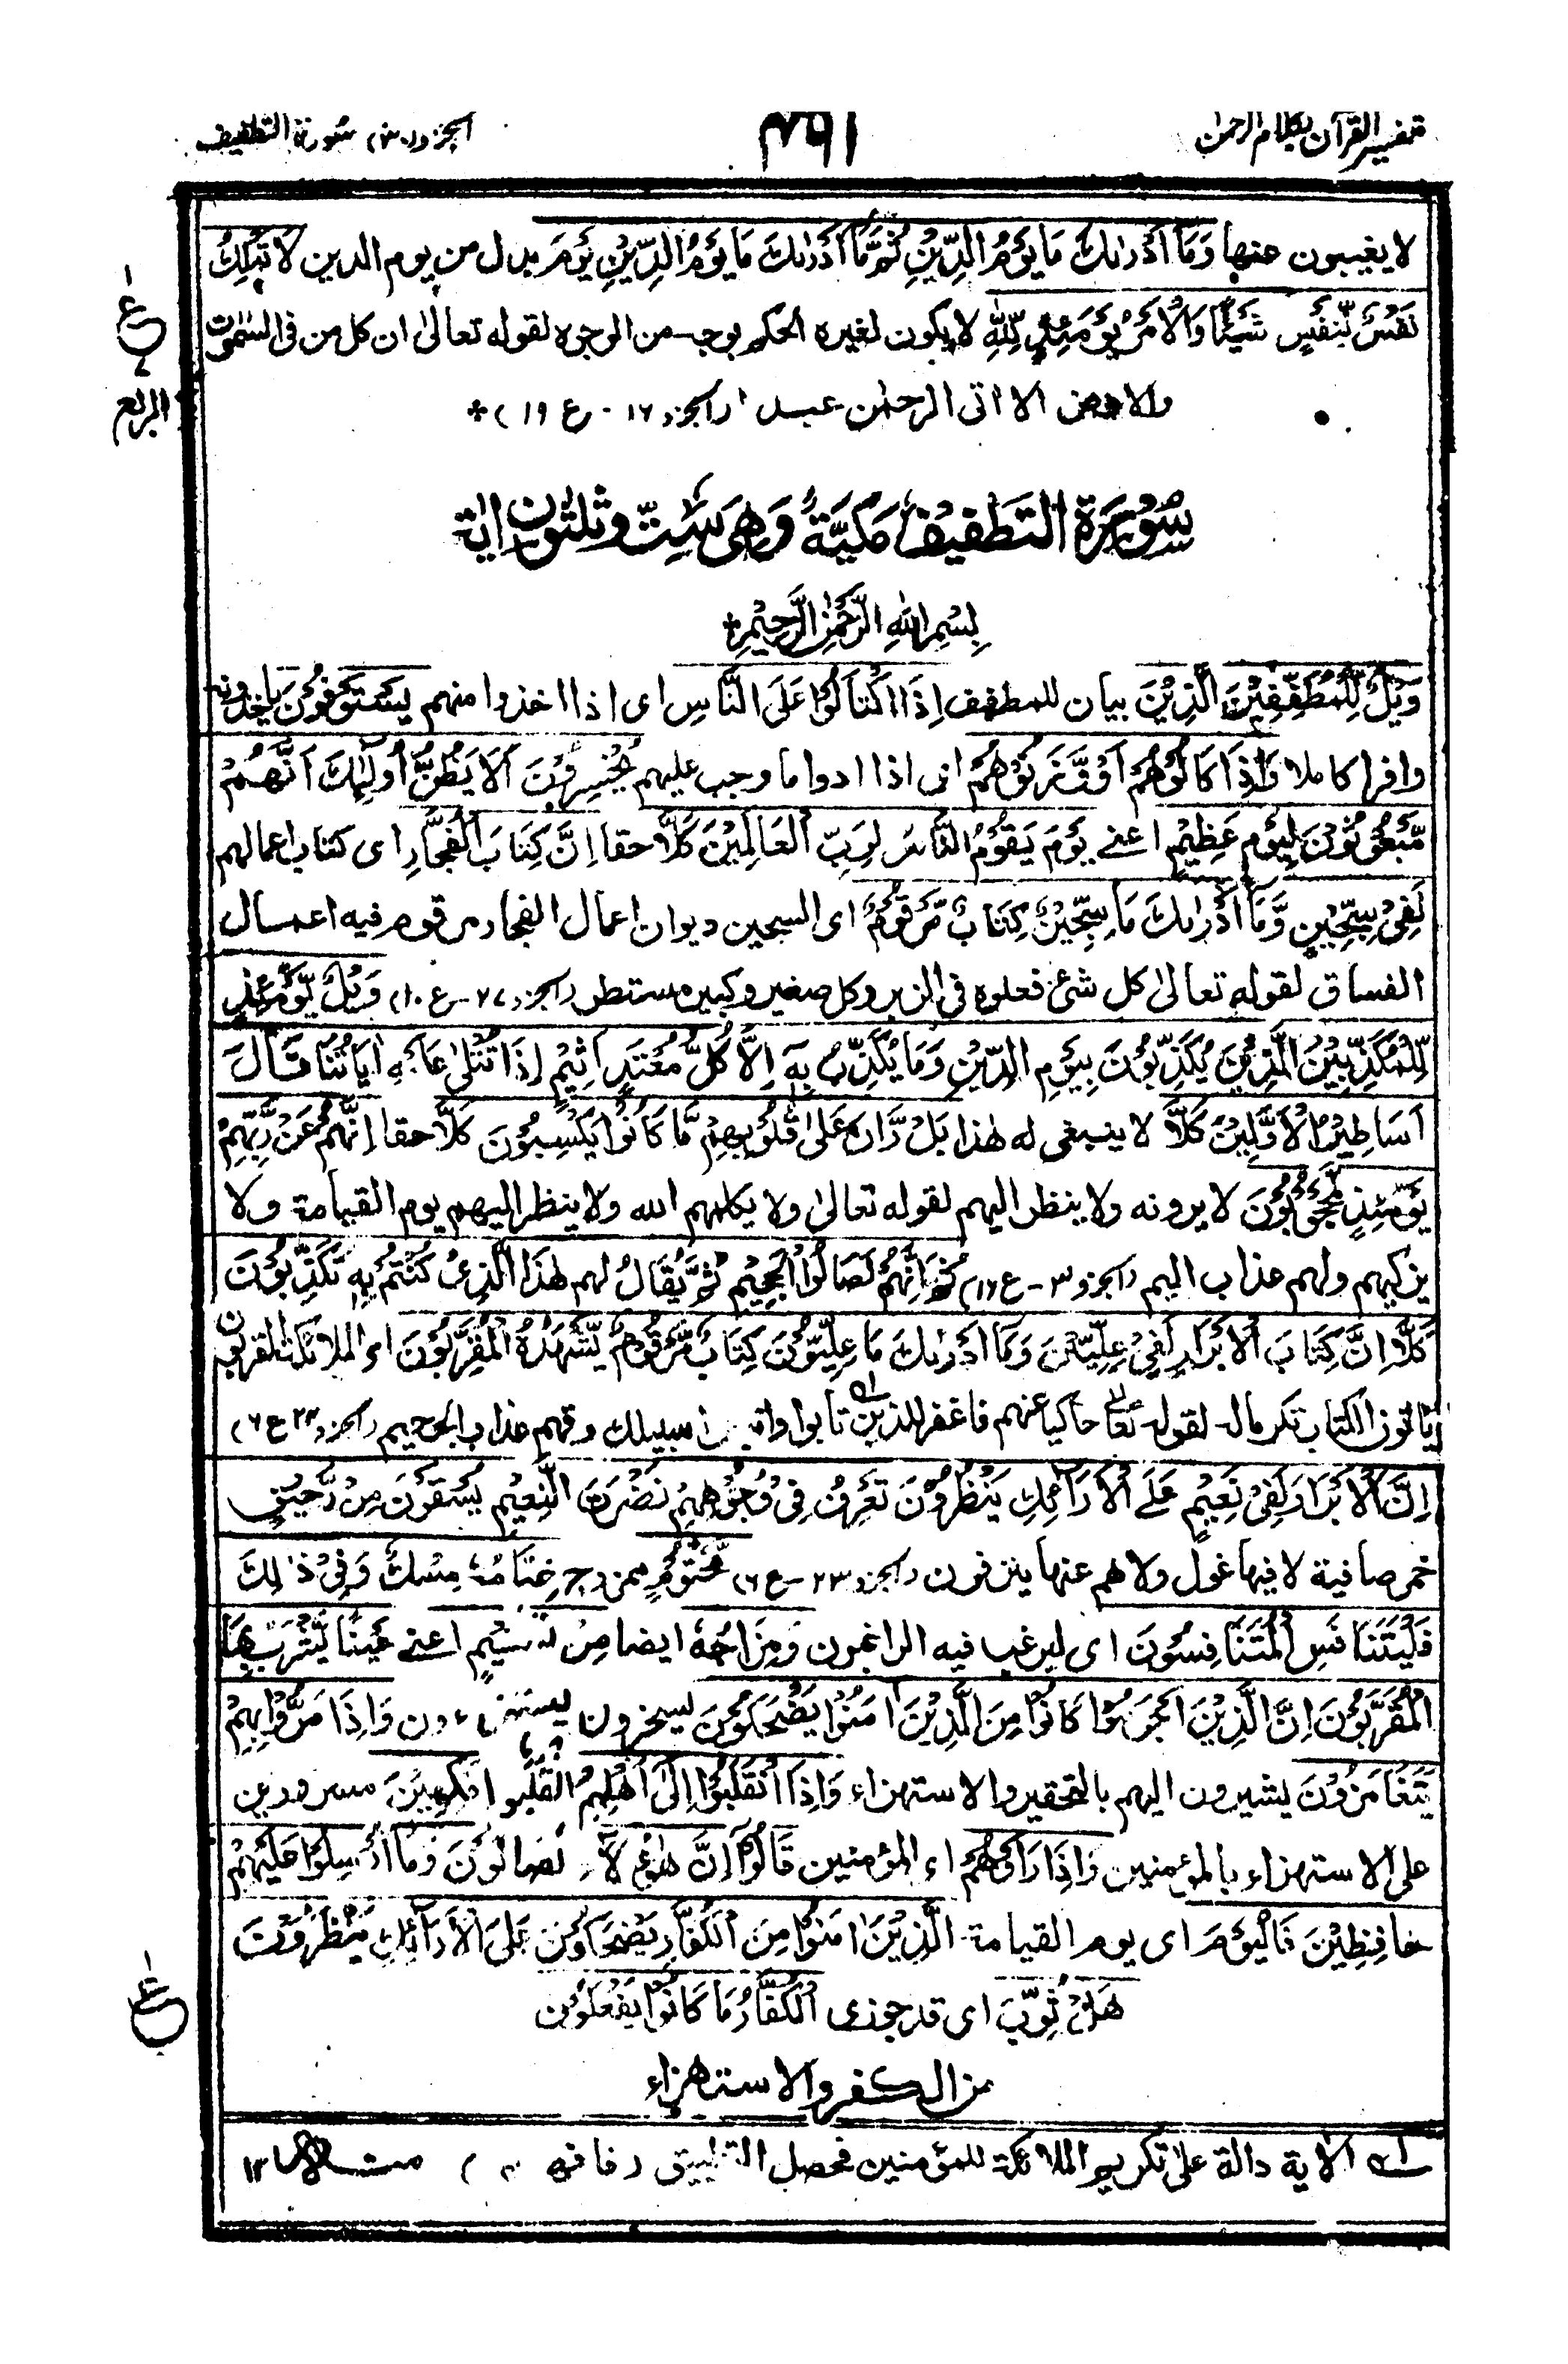 تفسير القرآن بكلام الرحمن
٣٩١
الجزو (٣٠) سورة التطفيف
لا يغيبون عنها وَمَا أَدْرٰىكَ مَا يَوْمُ الدِّيْنِ ثُمَّ مَا أَدْرٰىكَ مَا يَوْمُ الدِّيْنِ يَوْمَ بدل من يوم الدين لَا تَمْلِكُ
نَفْسٌ لِّنَفْسٍ شَيْئًا وَالْأَمْرُ يَوْمَئِذٍ لِّلّٰهِ لا يكون لغيره الحكم بوجه من الوجوه لقوله تعالىٰ ان كل من فى السمٰوٰت
والارض الا اتى الرحمٰن عبدا (الجزو ١٦ - ع ١٩) *
ع
الربع
سُوْرَةُ التَطْفِيْف مَكِيَّةٌ وَهِىَ سِتّ وثلٰثون اٰية
بِسْمِ اللّٰهِ الرَّحْمٰنِ الرَّحِيْمِ *
وَيْلٌ لِّلْمُطَفِّفِيْنَ الَّذِيْنَ بيان للمطفف إِذَا اكْتَالُوْا عَلَى النَّاسِ اى اذا اخذوا منهم يَسْتَوْفُوْنَ ياخذونه
وافرا كاملا وَإِذَا كَالُوْهُمْ أَوْ وَّزَنُوْهُمْ اى اذا ادوا ما وجب عليهم يُخْسِرُوْنَ أَلَا يَظُنُّ أُولٰئِكَ أَنَّهُمْ
مَّبْعُوْثُوْنَ لِيَوْمٍ عَظِيْمٍ اعنے يَوْمَ يَقُوْمُ النَّاسُ لِرَبِّ الْعَالَمِيْنَ كَلَّا حقا إِنَّ كِتَابَ الْفُجَّارِ اى كتاب اعمالهم
لَفِىْ سِجِّيْنٍ وَّمَا أَدْرٰىكَ مَا سِجِّيْنٌ كِتَابٌ مَّرْقُوْمٌ اى السجين ديوان اعمال الفجار مرقوم فيه اعمال
الفساق لقوله تعالىٰ كل شئ فعلوه فى الزبر وكل صغير وكبير مستطر (الجزو ٢٧ - ع ١٠) وَيْلٌ يَّوْمَئِذٍ
لِّلْمُكَذِّبِيْنَ الَّذِيْنَ يُكَذِّبُوْنَ بِيَوْمِ الدِّيْنِ وَمَا يُكَذِّبُ بِهٖ إِلَّا كُلُّ مُعْتَدٍ أَثِيْمٍ إِذَا تُتْلٰى عَلَيْهِ اٰيَاتُنَا قَالَ
أَسَاطِيْرُ الْأَوَّلِيْنَ كَلَّا لا ينبغى له هٰذا بَلْ رَانَ عَلٰى قُلُوْبِهِمْ مَّا كَانُوْا يَكْسِبُوْنَ كَلَّا حقا إِنَّهُمْ عَنْ رَّبِّهِمْ
يَوْمَئِذٍ لَّمَحْجُوْبُوْنَ لا يرونه ولا ينظر اليهم لقوله تعالىٰ ولا يكلمهم الله ولا ينظر اليهم يوم القيامة ولا
يزكيهم ولهم عذاب اليم (الجزو ٣ - ع ١٦) ثُمَّ إِنَّهُمْ لَصَالُوا الْجَحِيْمِ ثُمَّ يُقَالُ لهم هٰذَا الَّذِىْ كُنْتُمْ بِهٖ تُكَذِّبُوْنَ
كَلَّا إِنَّ كِتَابَ الْأَبْرَارِ لَفِىْ عِلِّيِّيْنَ وَمَا أَدْرٰىكَ مَا عِلِّيُّوْنَ كِتَابٌ مَّرْقُوْمٌ يَّشْهَدُهُ الْمُقَرَّبُوْنَ اى الملائكة المقربون
ياتون الكتاب تكرمالہ لقوله تعالىٰ حاكيا عنهم فاغفر للذين تابوا واتبعوا سبيلك وقهم عذاب الجحيم (الجزو ٢٤ ع ٦)
إِنَّ الْأَبْرَارَ لَفِىْ نَعِيْمٍ عَلَى الْأَرَائِكِ يَنْظُرُوْنَ تَعْرِفُ فِىْ وُجُوْهِهِمْ نَضْرَةَ النَّعِيْمِ يُسْقَوْنَ مِنْ رَّحِيْقٍ
خمر صافية لا فيها غول ولا هم عنها ينزفون (الجزو ٢٣ - ع ٦) مَّخْتُوْمٍ ممزوج خِتَامُهٗ مِسْكٌ وَفِىْ ذٰلِكَ
فَلْيَتَنَافَسِ الْمُتَنَافِسُوْنَ اى ليرغب فيه الراغبون وَمِزَاجُهٗ ايضا مِنْ تَسْنِيْمٍ اعنے عَيْنًا يَّشْرَبُ بِهَا
الْمُقَرَّبُوْنَ إِنَّ الَّذِيْنَ أَجْرَمُوْا كَانُوْا مِنَ الَّذِيْنَ اٰمَنُوْا يَضْحَكُوْنَ يسخرون يستهزءون وَإِذَا مَرُّوْا بِهِمْ
يَتَغَامَزُوْنَ يشيرون اليهم بالتحقير والاستهزاء وَإِذَا انْقَلَبُوْا إِلٰى أَهْلِهِمُ انْقَلَبُوا فَكِهِيْنَ مسرورين
على الاستهزاء بالمؤمنين وَإِذَا رَأَوْهُمْ اى المؤمنين قَالُوْا إِنَّ هٰؤُلَاءِ لَضَالُّوْنَ وَمَا أُرْسِلُوْا عَلَيْهِمْ
حَافِظِيْنَ فَالْيَوْمَ اى يوم القيامة الَّذِيْنَ اٰمَنُوْا مِنَ الْكُفَّارِ يَضْحَكُوْنَ عَلَى الْأَرَائِكِ يَنْظُرُوْنَ
هَلْ ثُوِّبَ اى قد جوزى الْكُفَّارُ مَا كَانُوْا يَفْعَلُوْنَ
ع
من الكفر والاستهزاء
لہ الاية دالة علىٰ تكريم الملائكة للمؤمنين فحصل التطبيق (فافهم) منہ ١٢